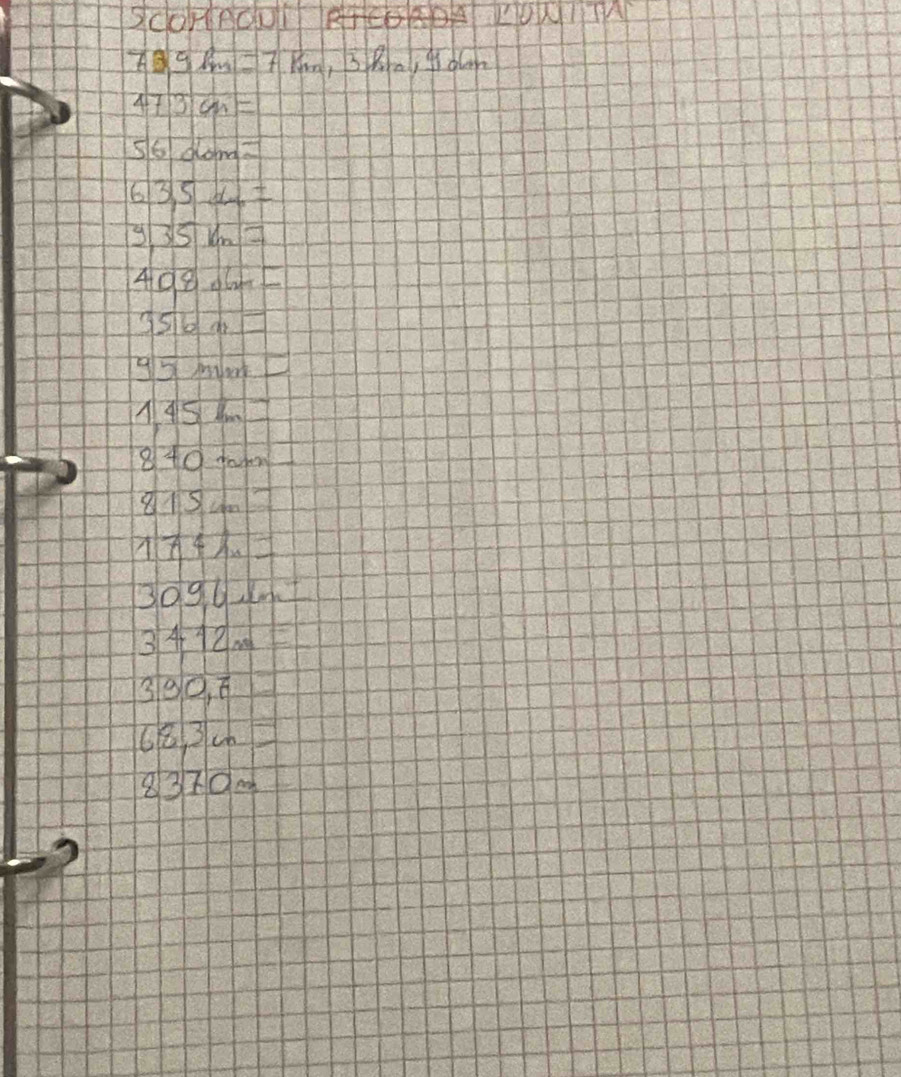 7 9 hm = 7 km, 3 hm, 9 dam
473 cm =
56 dam =
63,5 dm =
9,35 km =
408 dam =
356 m =
95 mm =
1,45 hm =
840 mm
815 cm =
174 hm =
309,6 dam =
34,12 m =
390,7 =
68,3 cm =
8370 m